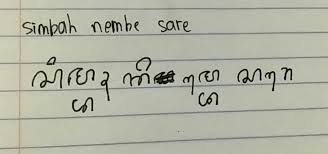 simbah nembe sare
ꦱꦶꦩ꧀ꦧꦃ ꦤꦼꦩ꧀ꦧꦺ ꦱꦫꦺ